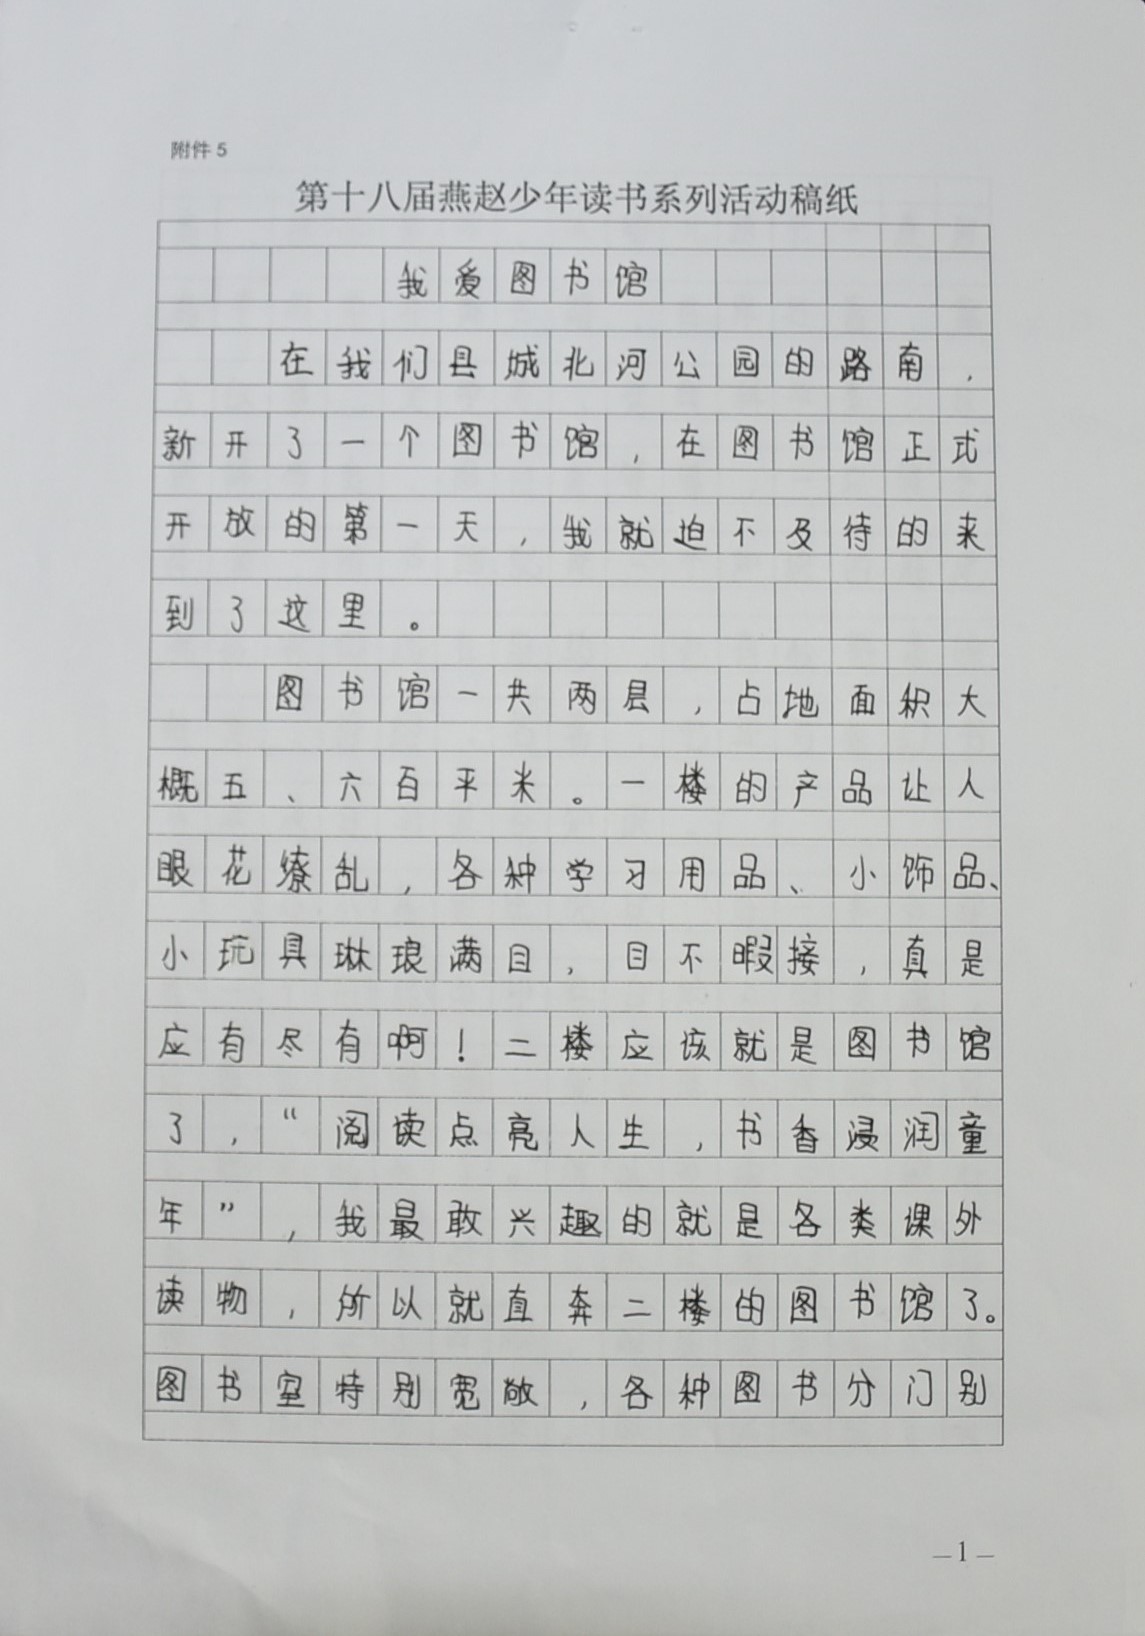 附件5
第十八届燕赵少年读书系列活动稿纸
我爱图书馆
在我们县城北河公园的路南，
新开了一个图书馆，在图书馆正式
开放的第一天，我就迫不及待的来
到了这里。
图书馆一共两层，占地面积大
概五、六百平米。一楼的产品让人
眼花缭乱，各种学习用品、小饰品、
小玩具琳琅满目，目不暇接，真是
应有尽有啊！二楼应该就是图书馆
了，“阅读点亮人生，书香浸润童
年”，我最敢兴趣的就是各类课外
读物，所以就直奔二楼的图书馆了。
图书室特别宽敞，各种图书分门别
—1—